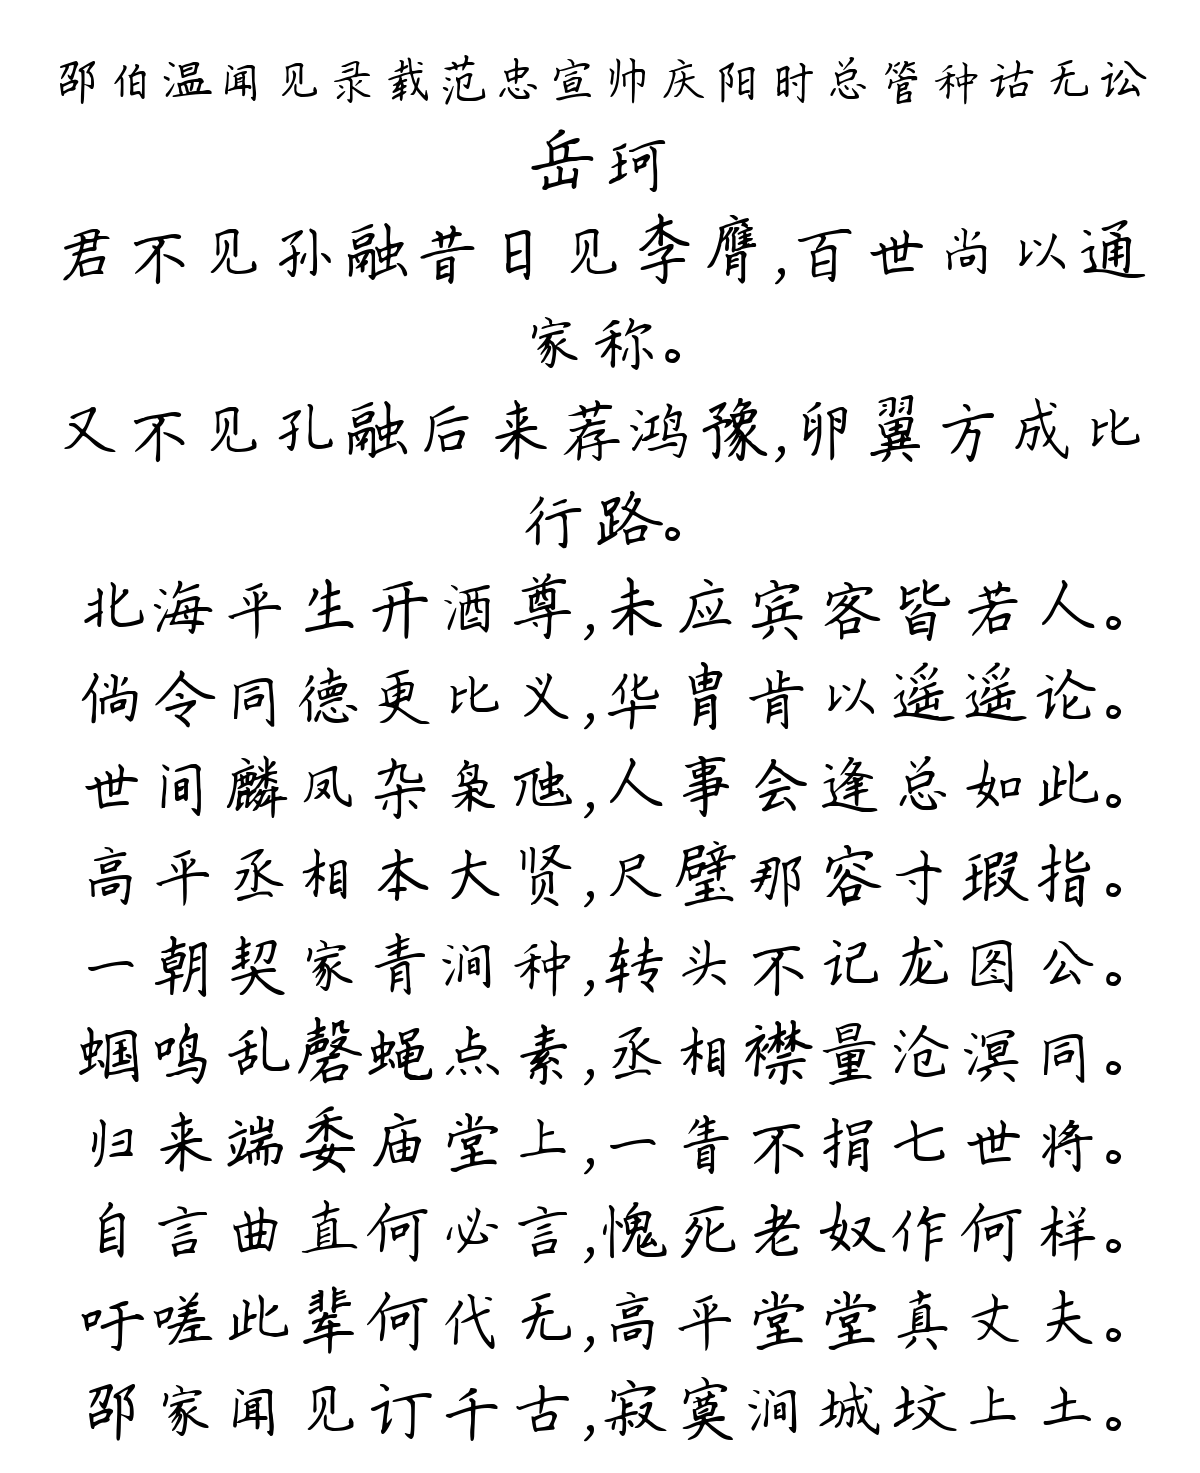 邵伯温闻见录载范忠宣帅庆阳时总管种诂无讼
岳珂
君不见孙融昔日见李膺,百世尚以通
家称。
又不见孔融后来荐鸿豫,卵翼方成比
行路。
北海平生开酒尊,未应宾客皆若人。
倘令同德更比义,华胄肯以遥遥论。
世间麟凤杂枭虺,人事会逢总如此。
高平丞相本大贤,尺璧那容寸瑕指。
一朝契家青涧种,转头不记龙图公。
蝈鸣乱磬蝇点素,丞相襟量沧溟同。
归来端委庙堂上,一眚不捐七世将。
自言曲直何必言,愧死老奴作何样。
吁嗟此辈何代无,高平堂堂真丈夫。
邵家闻见订千古,寂寞涧城坟上土。